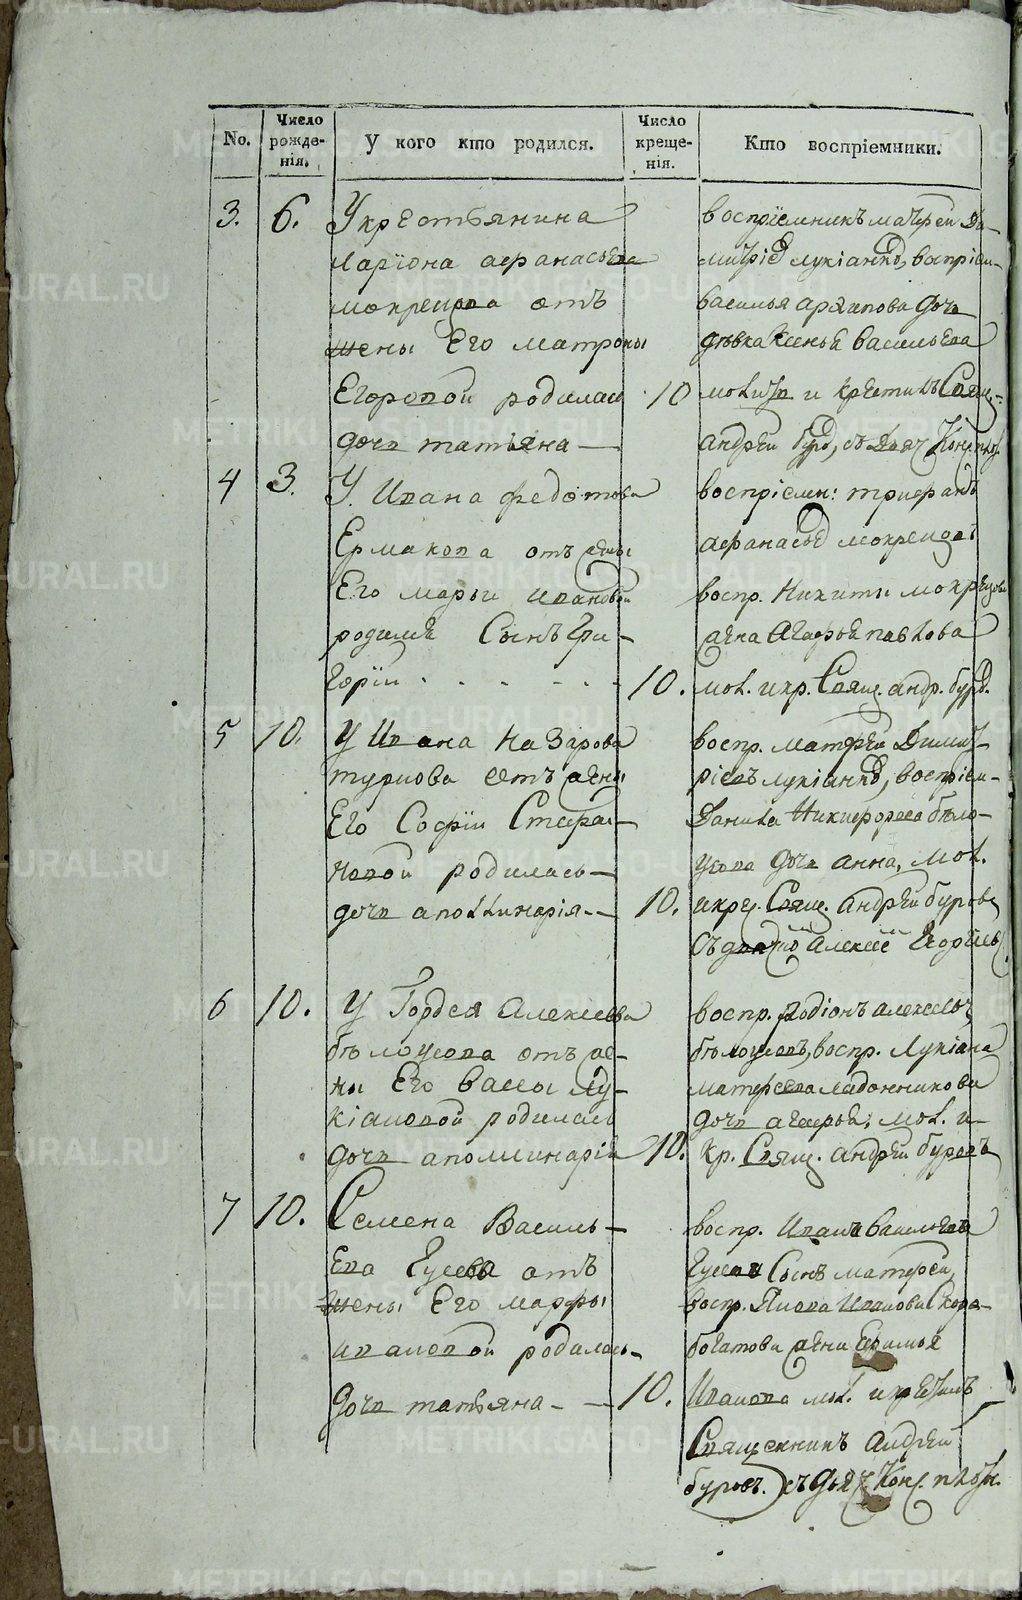 No. Число рожденія. У кого кто родился. Число крещенія. Кто воспріемники.
3. 6. У крестьянина
Ларіона афанасьева
мокрецова отъ
жены Его матроны
Егоровой родилась
дочь татіяна
10 воспріемникъ матфей Ди-
митріевъ лукіанинъ, воспріем-
василья архипова дочь
дѣвка Ксенья васильева
мол. и крестилъ Свящ.
андрей буровъ, съ
4 3. У Ивана федотова
Ермакова отъ жены
Его марьи ивановой
родился Сынъ Гри-
горій
10. воспріем: трифонъ
афанасьевъ мокрецовъ
воспр. Никиты мокрецова
жена Агафья павлова
мол. и кр. Свящ. андр. буров.
5 10. У Ивана Назарова
отъ жены
Его Софіи Стефа-
новой родилась
дочь аполлинарія
10. воспр. матфей Димит-
ріевъ лукіанинъ, воспріем-
Данила Никифорова бѣло-
усова дочь анна, мол.
и крес. Свящ. андрей буровъ
съ алексѣе Егорьев
6 10. У Гордея Алексеева
бѣлоусова отъ же-
ны Его вассы лу-
кіановой родилась
дочь аполлинарія
10. воспр. Родіонъ алексеевъ
бѣлоусовъ, воспр. Лукіана
матфеева ладонникова
дочь агафья, мол. и
кр. Свящ. андрей буровъ
7 10. Семена Василь-
ева Гусева отъ
жены Его марфы
ивановой родилась
дочь татьяна
10. воспр. Ивана васильева
Гусева Сынъ матфей,
воспр. Ивановы Скоро-
богатова жена
Иванова мол. и крестилъ
Священникъ Андрей
буровъ. съ дьяч. Конс.
METRIKI.GASO-URAL.RU